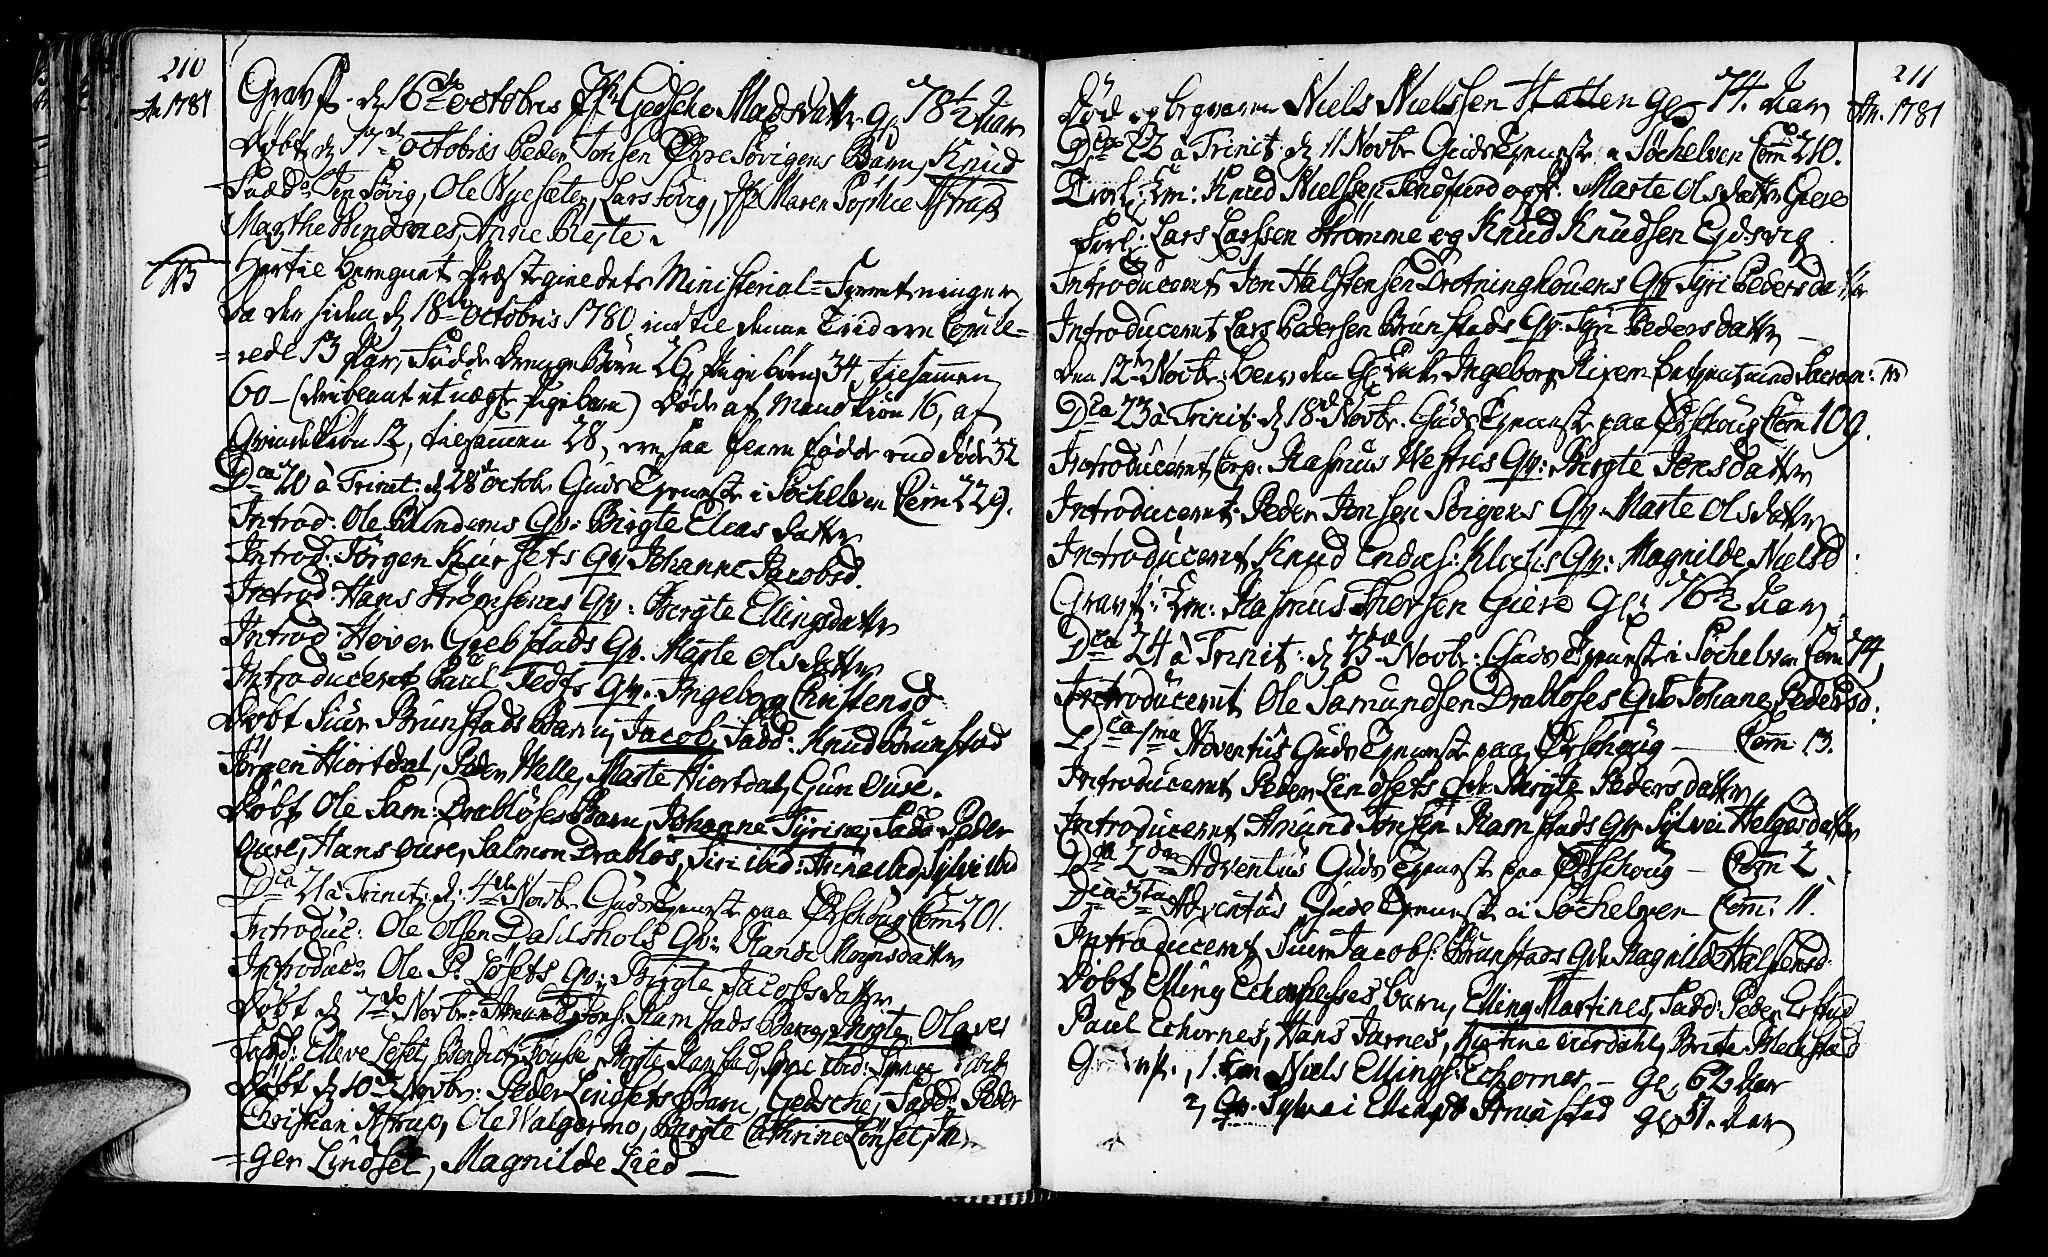 210
An 1781
Gravf. d 16de octobris Jfr. Gedsche Madsdatter g. 78½ Aar
Døbt d 17de octobris Peder Jonsen Øvre Søvigens Barn, Knud
Fadd: Jen Søvig, Ole Nysæter, Lars Søvig, Jfr Maren Sophie Astrup
Marthe Bindsnes, Anne Reite.
NB Hertil beregnet Præstegieldets Ministerial-Forretninger,
da der siden d 18de octobris 1780 indtil denne Tid ere Copule-
=rede 13 Par, Fødde Drenge Børn 26, Pige børn 34, tilsammen
60 - (deriblant et uægte Pige barn) Døde af Mandkiøn 16, af
Qvindekiøn 12, tilsammen 28, ere saa fleere fødde end døde 32
Dca 20 à Trinit: d 28de octobr Guds Tieneste i Søchelven Com 229.
Introd: Ole Blindems Qv: Birgte Elias datter
Introd: Jørgen Kursets Qv Johanne Jacobsd.
Introd: Hans Strømsenes Qv: Birgte Ellingsdatter
Introd: Heiver Grebstads Qv. Marte Olsdatter
Introduceret Paul Tedfs Qv. Ingeborg Christensd
Døbt Siur Brunstads Barn, Jacob, Fadd: Knud Brunstad
Jørgen Hiortdal, Peder Welle, Marte Hiortdal, Guru Ouse.
Døbt Ole Sam: Drabløses Barn, Johanne Tyrina, Fadd: Peder
Oure, Hans Oure, Salmon Drabløs, Siri ibid: Anne ibid, Sylvi ibid
Dca 21 à Trinit: d: 4de Novbr Guds Tieneste paa Ørschoug Com 201.
Introduc: Ole Olsen Dahlshols Qv: Randi Mognsdatter
Introduc: Ole P: Løsets Qv: Birgte Jacobsdatter
Døbt d 7de Novbr: Amund Jons: Ramstads Barn, Birgte Olaves
Fadd: Elleve Leset, Bendict Ramstad,
Døbt d 10de Novbr: Peder Lindsets Barn, Gedsche, Fadd: Peder
Christian Astrup, Ole Walgermo, Birgte Cathrine Lønset, In
=ger Lindset, Magnilde Lied -
211
An. 1781
Død og begraven Niels Nielssen Hatlen gl 74. Aar
Dca 22 à Trinit: d 11 Novbr Guds Tieneste i Søchelven Com 210.
Trol: Em: Knud Nielsen Tendfiord og P. Marte Olsdatter Giere
Forl: Lars Larssen Strømme og Knud Knudsen Eidsvig
Introduceret Jon Halstensen Drotninghougens Qv Tyri Pedersdatter
Introduceret Lars Pedersen Brunstads Qv. Tyri Pedersdatter
Den 12te Novbr: blev den Gl Enke Ingeborg betient med Sacram:
Dca 23 à Trinit: d 18de Novbr. Guds Tieneste paa Ørschoug Com 109.
Introduceret Corp: Rasmus Westres Qv: Birgte Jonsdatter
Introduceret Peder Jonsen Søvigens Qv. Marte Olsdatter
Introduceret Knud Endres: Kløchs Qv: Magnilde Nielsd.
Gravf: Em: Rasmus Iversen Giere Gl: 76½ Aar
Dca 24 à Trinit: d 25de Novbr: Guds Tieneste i Søchelven Com 74,
Introduceret Ole Samundsen Drabløses Qv Johane Pedersd:
Dca 1ma Adventus Guds Tieneste paa Ørschoug - Com 13.
Introduceret Peder Lindsets Qv Birgte Pedersdatter
Introduceret Amund Jonsen Ramstads Qv Sylvei Helgesdatter
Dca 2da Adventus Guds Tieneste paa Ørschoug - Com 2
Dca 3tia Adventus Guds Tieneste i Søchelven - Com: 11.
Introduceret Siur Jacobs: Brunstads Qv Ragnilde Halstensd:
Døbt Elling Echornesses barn, Elling Martines, Fadd: Peder
Paul Echornes, Hans Jarnes, Kirstine Aurdahl, Brite Blechstad
Gravf., 1. Em Niels Ellings: Echornes - gl 62 Aar
2, Qv. Sylvei Ellingsd Amstad gl 51. Aar